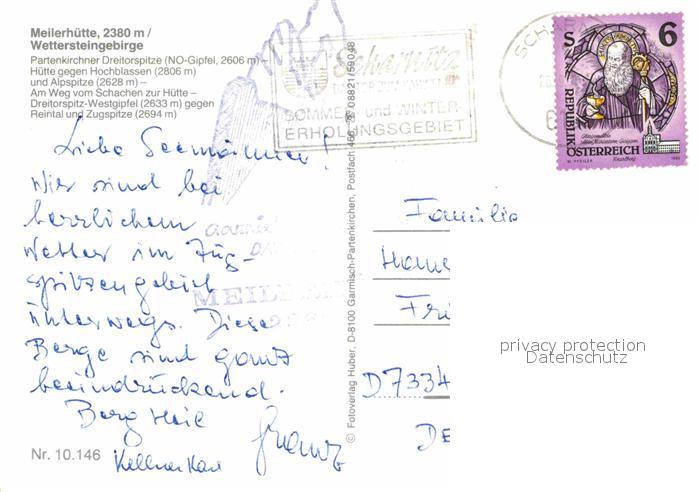 Meilerhütte, 2380 m /
Wettersteingebirge
Partenkirchner Dreitorspitze (NO-Gipfel, 2606 m) –
Hütte gegen Hochblassen (2806 m)
und Alpspitze (2628 m) –
Am Weg vom Schachen zur Hütte –
Dreitorspitz-Westgipfel (2633 m) gegen
Reintal und Zugspitze (2694 m)
Liebe Seemänner!
Wir sind bei
herrlichem
Wetter im Zug-
spitzengebiet
unterwegs. Diese
Berge sind ganz
beeindruckend.
Berg Heil
Franz
Nr. 10.146
© Fotoverlag Huber, D-8100 Garmisch-Partenkirchen, Postfach 466, ☎ 08821/59048
Scharnitz
SOMMER und WINTER
ERHOLUNGSGEBIET
MEIL
S 6
REPUBLIK
ÖSTERREICH
Familie
Hans
Fri
D7334
DE
privacy protection
Datenschutz